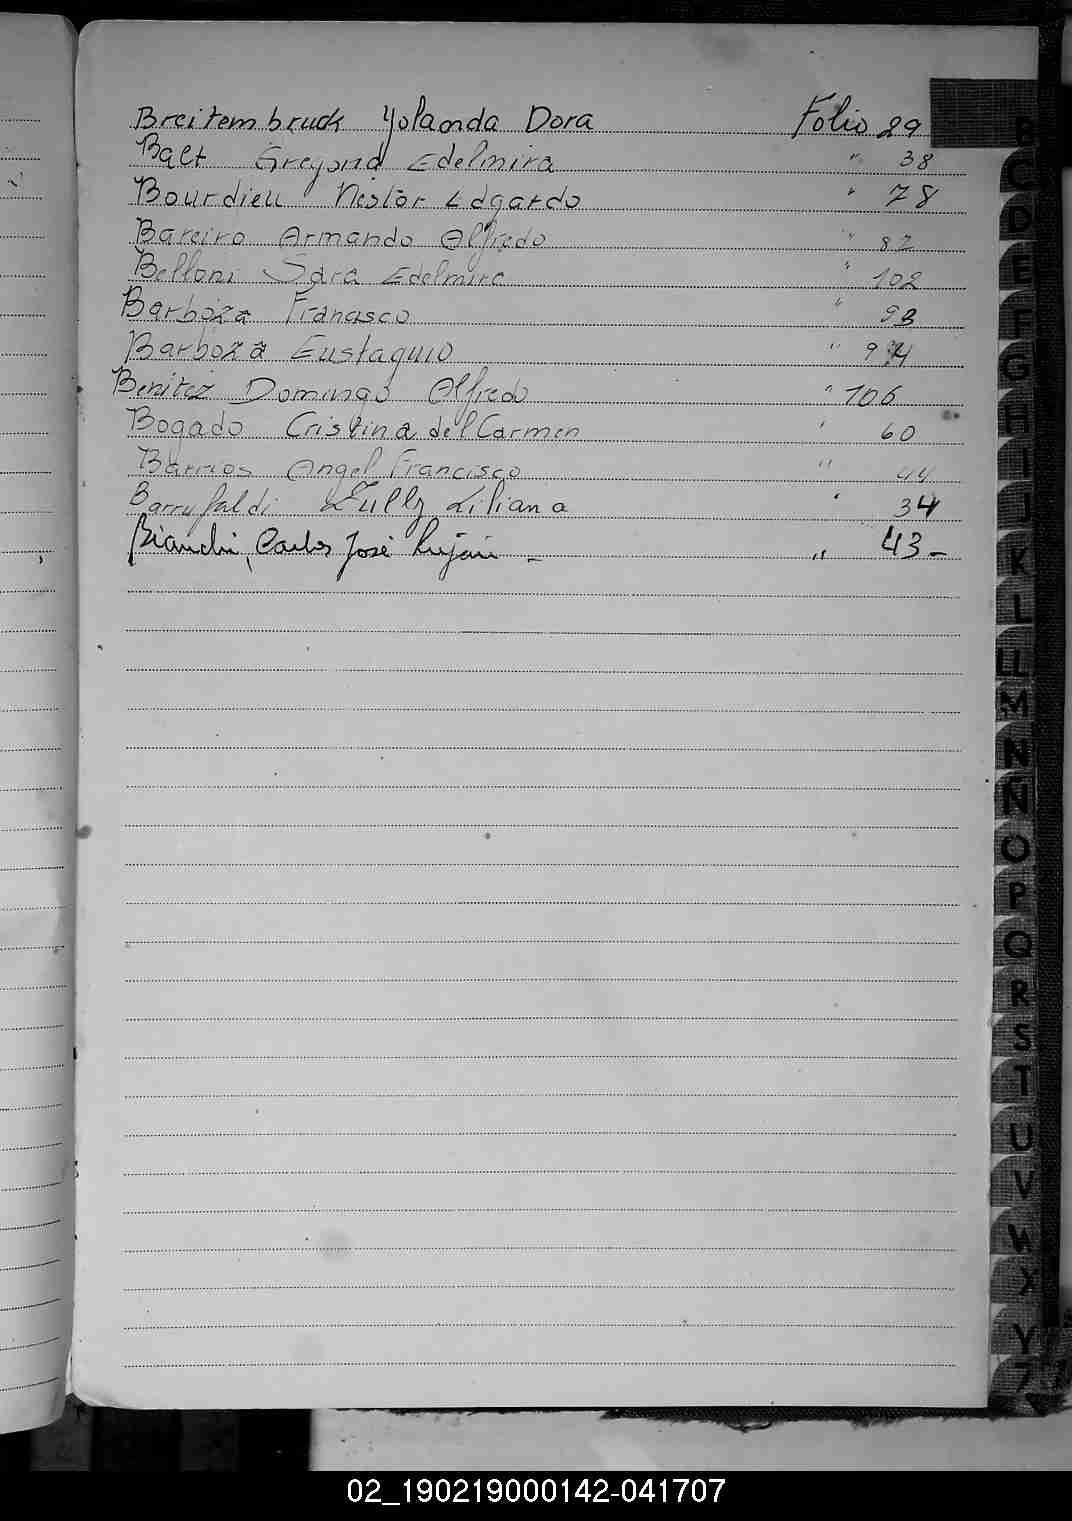 Breitembruck Yolanda Dora Folio 29
Balt Gregoria Edelmira " 38
Bourdieu Nestor Edgardo " 78
Bareiro Armando Alfredo " 82
Belloni Sara Edelmira " 102
Barboza Francisco " 93
Barboza Eustaquio " 94
Benitez Domingo Alfredo " 106
Bogado Cristina del Carmen " 60
Barrios Angel Francisco " 44
Barrufaldi Zully Liliana " 34
Bianchi, Carlos José Luján - " 43-
B
C
D
E
F
G
H
I
J
K
L
LL
M
N
Ñ
O
P
Q
R
S
T
U
V
W
X
Y
Z
02_190219000142-041707